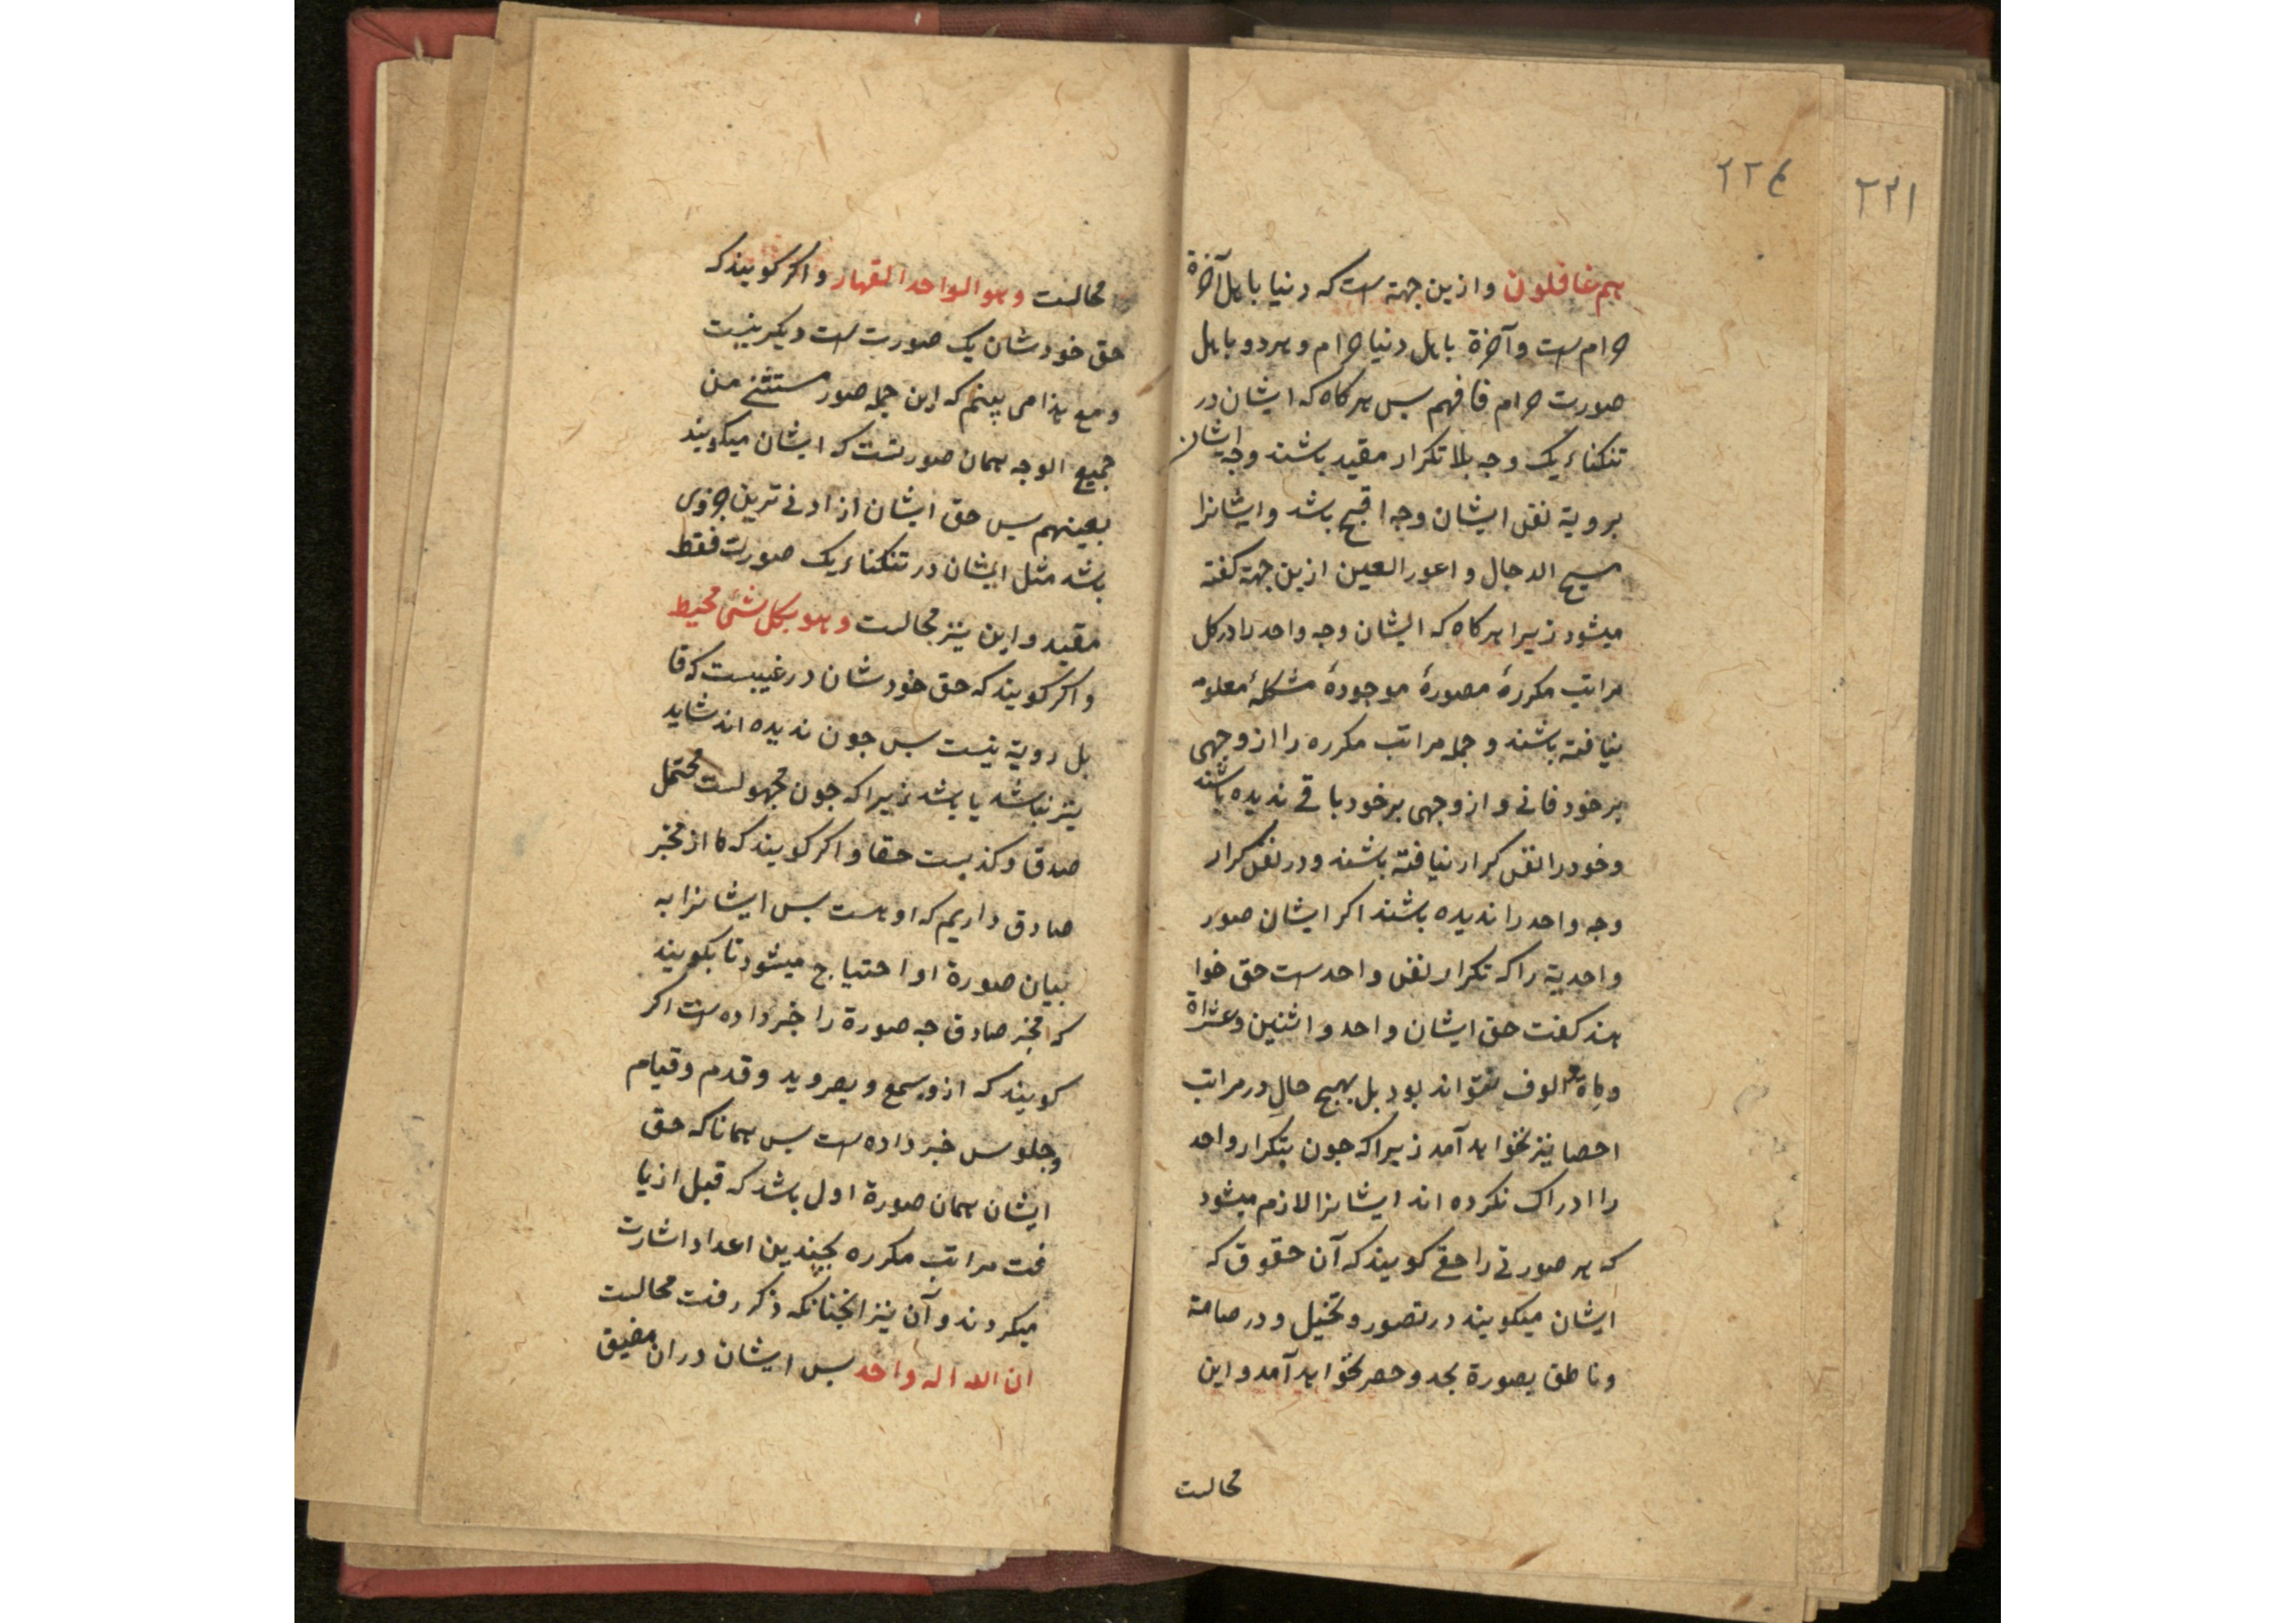 ۲۲۴
۲۲۱
هم غافلون و ازین جهة است که دنیا باهل آخرة
حرام است و آخرة باهل دنیا حرام و هر دو باهل
صورت حرام فافهم پس هر کاه که ایشان در
تنکناء یک وجه بلا تکرار مقید باشند وجه ایشان
برویة نفس ایشان وجه اقبح باشد و ایشانرا
مسیح الدجال و اعور العین ازین جهة کفته
میشود زیرا هر کاه که ایشان وجه واحد را در کل
مراتب مکررۀ مصورۀ موجودۀ مشکلۀ معلومه
نیافته باشند و جمله مراتب مکرره را از وجهی
بر خود فانی و از وجهی بر خود باقی ندیده باشند
و خود را نفس کرار نیافته باشند و در نفس کرار
وجه واحد را ندیده باشند اکر ایشان صور
واحدیة را که تکرار نفس واحد است حق خوا
هند کفت حق ایشان واحد و اثنین و عشراة
و ماة و الوف نتواند بود بل بهیچ حال در مراتب
احصا نیز نخواهد آمد زیرا که جون بتکرار واحد
را ادراک نکرده اند ایشانرا لازم میشود
که هر صورتی را حقی کویند که آن حقوق که
ایشان میکویند در تصور و تخیل و در صامته
و ناطق بصورة بحد و حصر نخواهد آمد و این
محالست
محالست و هو الواحد القهار و اکر کویند که
حق خودشان یک صورت است دیکر نیست
و مع هذا می بینم که این جمله صور مستثنی من
جمیع الوجه همان صورتست که ایشان میکویند
بعینهم پس حق ایشان از ادنی ترین جزوی
باشد مثل ایشان در تنکناء یک صورت فقط
مقید و این نیز محالست و هو بکل شئ محیط
و اکر کویند که حق خودشان در غیبست که قا
بل رویة نیست پس جون ندیده اند شاید
نیز نباشد یا باشد زیرا که جون مجهولست محتمل
صدقا و کذبست حقا و اکر کویند که ما از مخبر
صادق داریم که او هست پس ایشانرا به
بیان صورة او احتیاج میشود تا بکویند
که مخبر صادق جه صورة را خبر داده است اکر
کویند که ازو بسمع و بصر و ید و قدم و قیام
و جلوس خبر داده است پس همانا که حق
ایشان همان صورة اول باشد که قبل از یا
فت مراتب مکرره بچندین اعداد اشارت
میکردند و آن نیز انجنانکه ذکر رفت محالست
ان الله اله واحد پس ایشان در ان مضیق